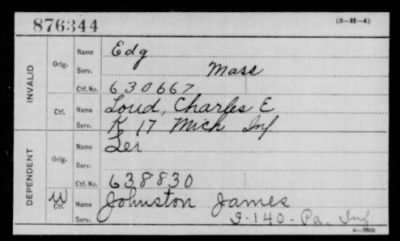 876344
(3-H-4)
INVALID
Orig. Name Edg
Serv. Mass
Ctf. No. 630667
Ctf. Name Loud, Charles E
Serv. K 17 Mich Inf
DEPENDENT
Orig. Name Ler
Serv.
Ctf. No. 638830
W Ctf. Name Johnston James
Serv. I-140-Pa. Inf